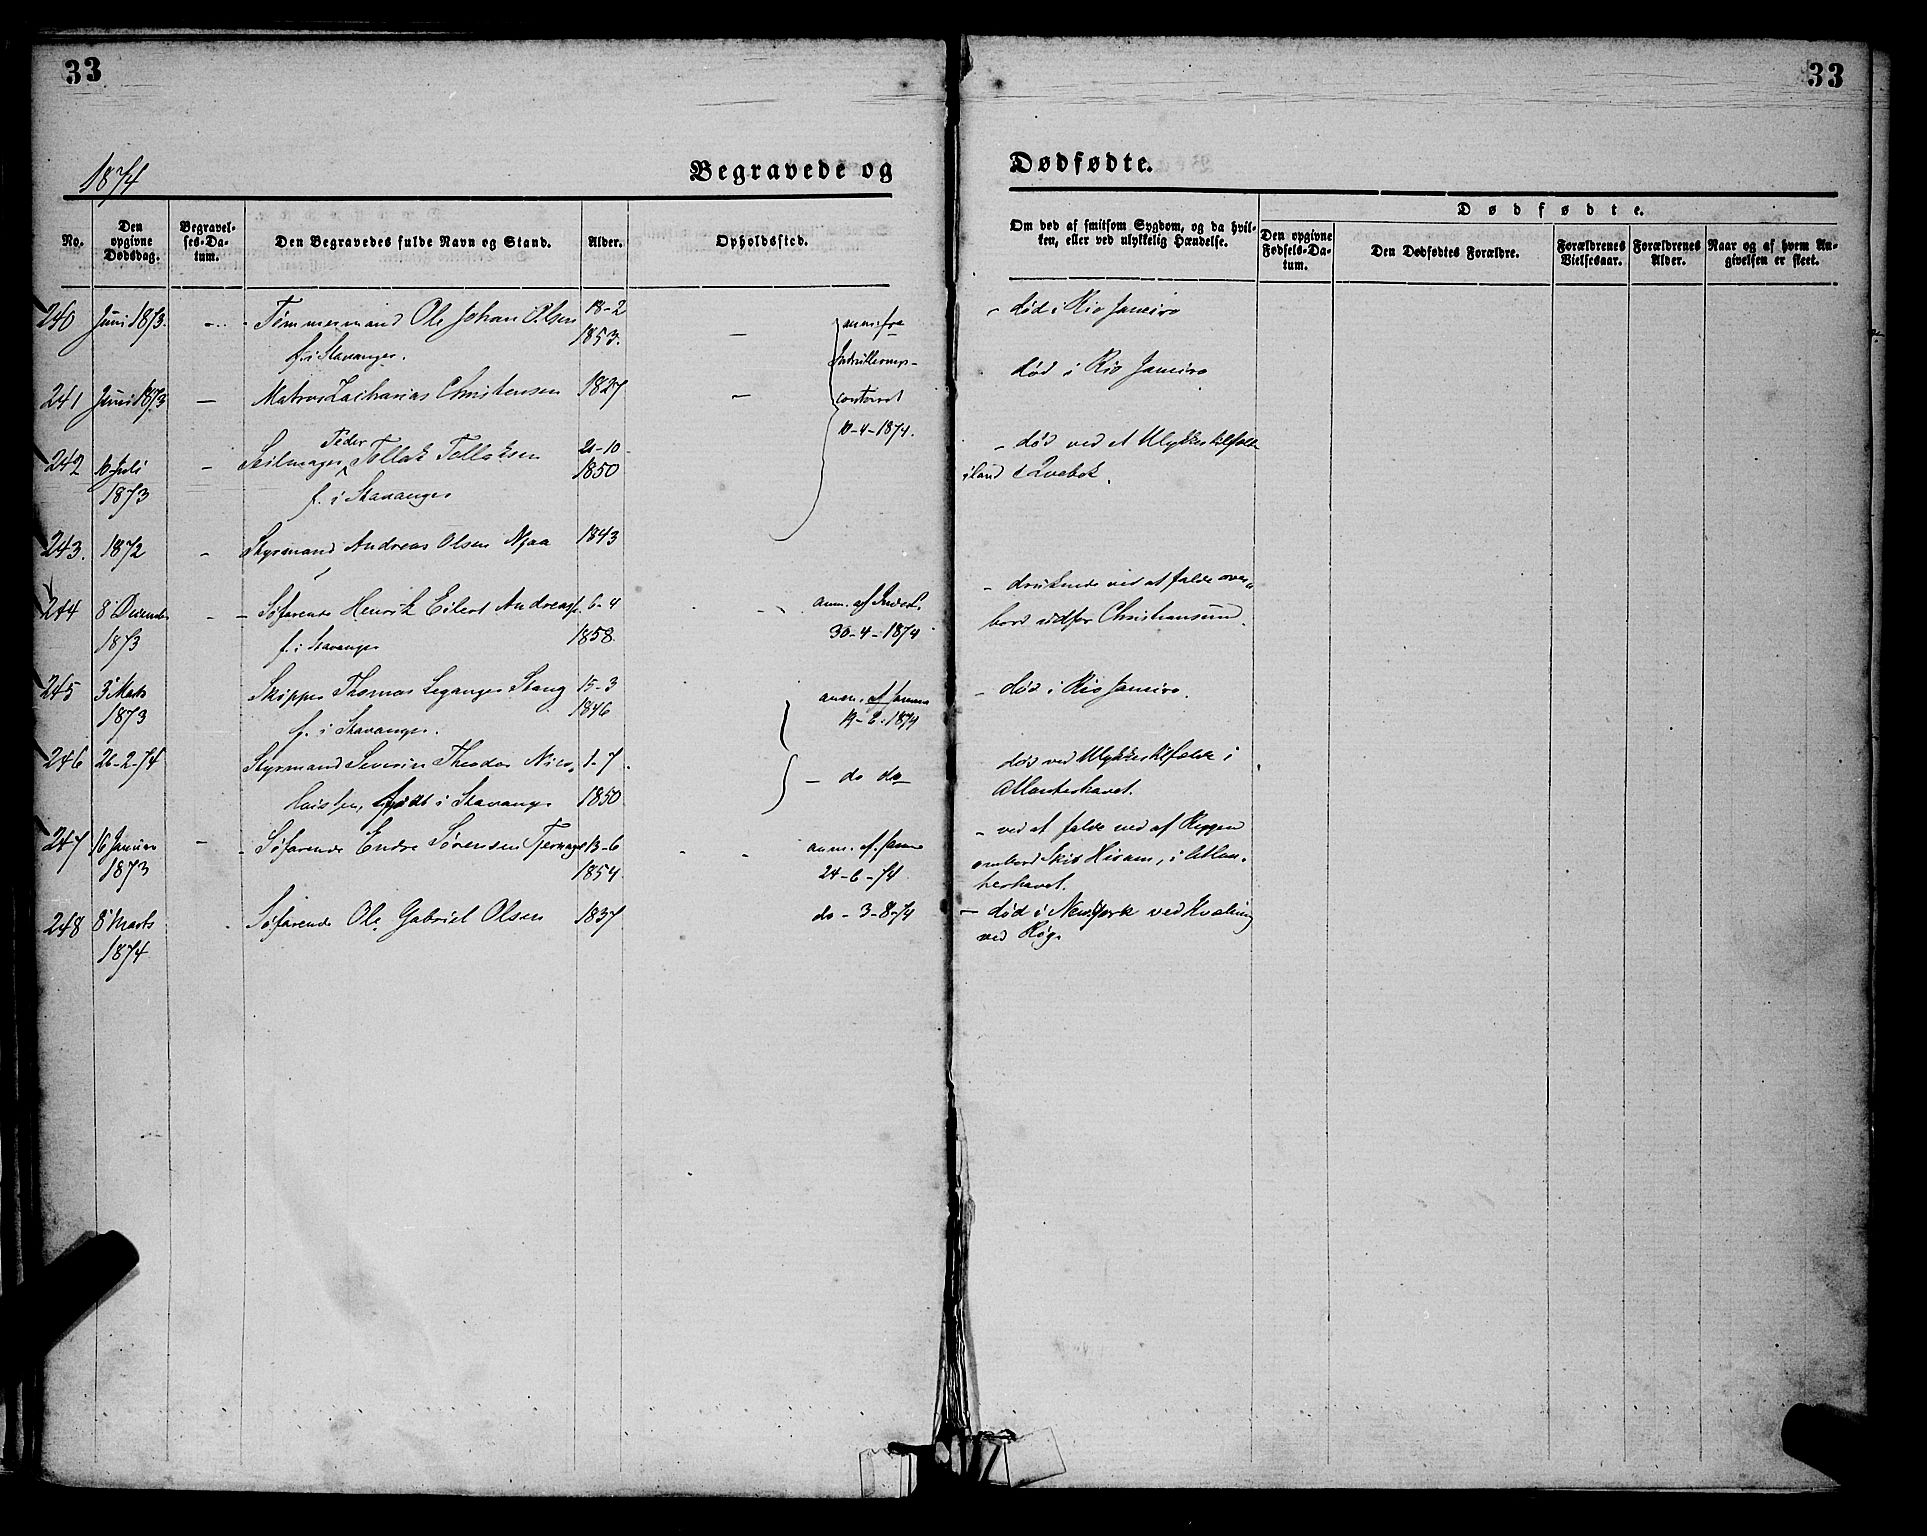 33
33
1874
Begravede og
Dødfødte.
No.
Den opgivne Dødsdag.
Begravelses-Datum.
Den Begravedes fulde Navn og Stand.
Alder.
Opholdssted.
Om død af smitsom Sygdom, og da hvilken, eller ved ulykkelig Hændelse.
Dødfødte.
Den opgivne Fødsels-Datum.
Den Dødfødtes Forældre.
Forældrenes Vielsesaar.
Forældrenes Alder.
Naar og af hvem Angivelsen er skeet.
240 Juni 1873. Tømmermand Ole Johan Olsen 18-2 anm. fra - død i Rio Janeiro
f. i Stavanger. 1853.
241 Juni 1873 Matros Zacharias Christensen 1827 contoret død i Rio Janeiro
10-4-1874.
Peder
242 10 Juli Seilmager Tollak Tollaksen 21-10 - død ved et Ulykkestilfælde
1873 f. i Stavanger 1850 i Qvebek.
243. 1872 Styrmand Andreas Olsen Njaa 1843
244 8 December Søfarende Henrik Eilert Andreas 6-4 anm. af - druknede ved at falde over
1873 f. i Stavanger 1858. 30-4-1874 bord udfor Christiansund.
245 3 Marts Skipper Thomas Leganger Stang 15-3 anm. af - død i Rio Janeiro.
1873 f. i Stavanger. 1846 1874
246 26-2-74 Styrmand Severin Theodor 1-7 - do do død ved Ulykkestilfælde i
født i Stavanger 1850 Atlanterhavet.
247 16 Januar Søfarende Endre Sørensen Tjernagel 13-6 anm. af - ved at falde ned af Riggen
1873 1854 24-6-74 ombord Skib i Atlanterhavet.
248 8 Marts Søfarende Ole Gabriel Olsen 1837 do - 3-8-74 - død i New York ved Kvælning
1874 ved Røg.